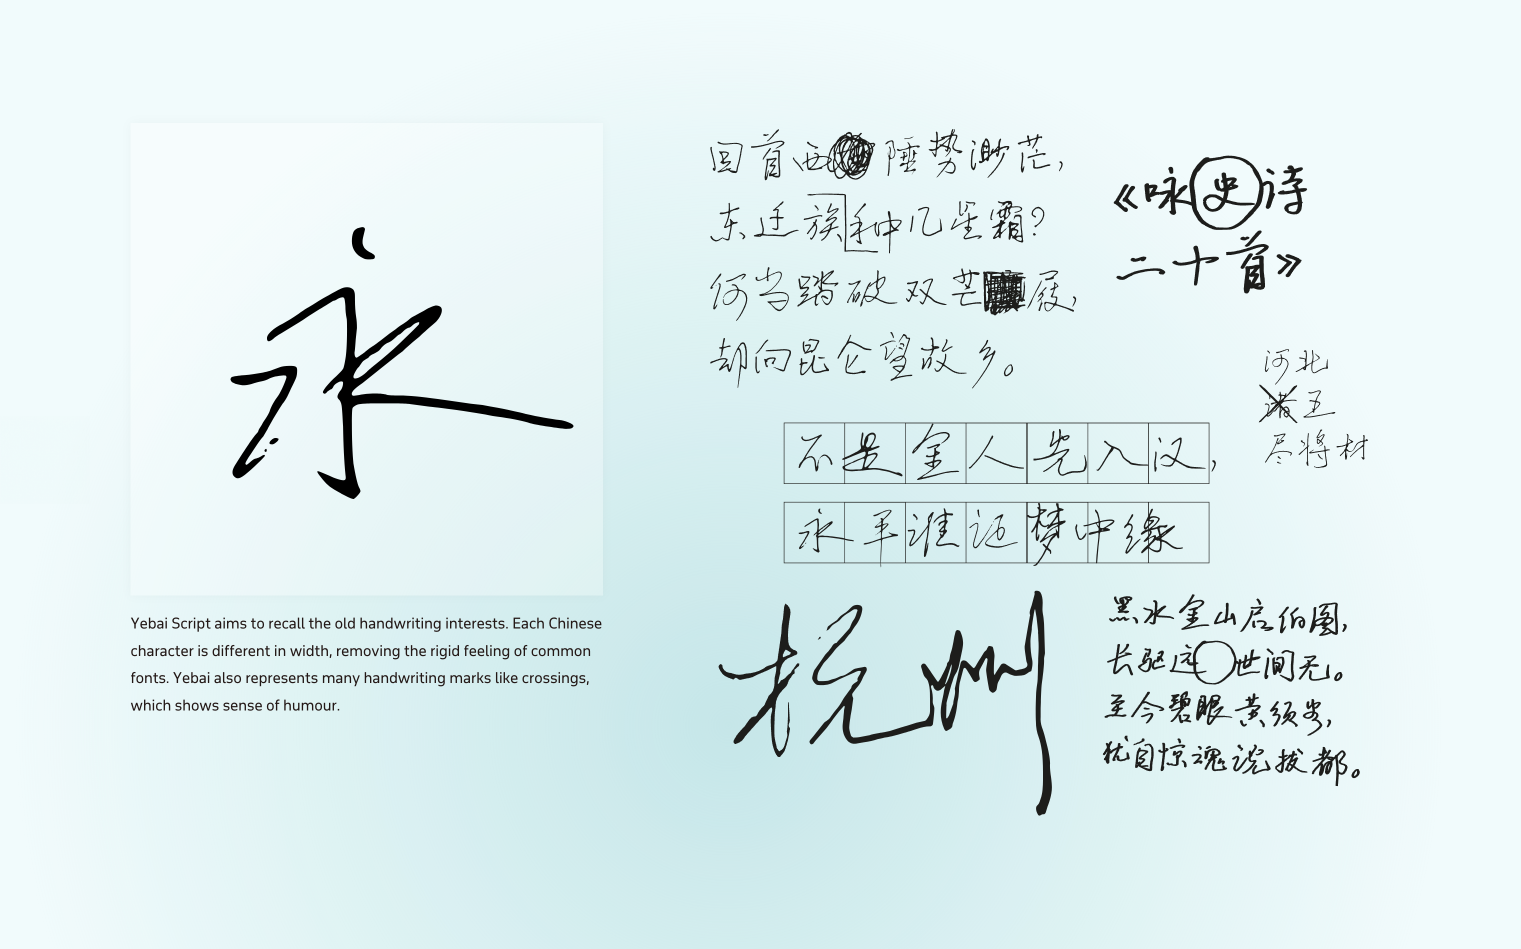 永
Yebai Script aims to recall the old handwriting interests. Each Chinese
character is different in width, removing the rigid feeling of common
fonts. Yebai also represents many handwriting marks like crossings,
which shows sense of humour.
回首西陲势渺茫，
东迁族种几星霜？
何当踏破双芒屐，
却向昆仑望故乡。
《咏史诗
二十首》
河北
五
尽将材
不是金人先入汉，
永平谁证梦中缘
杭州
黑水金山启伯图，
长驱远世间无。
至今碧眼黄须客，
犹自惊魂说拔都。